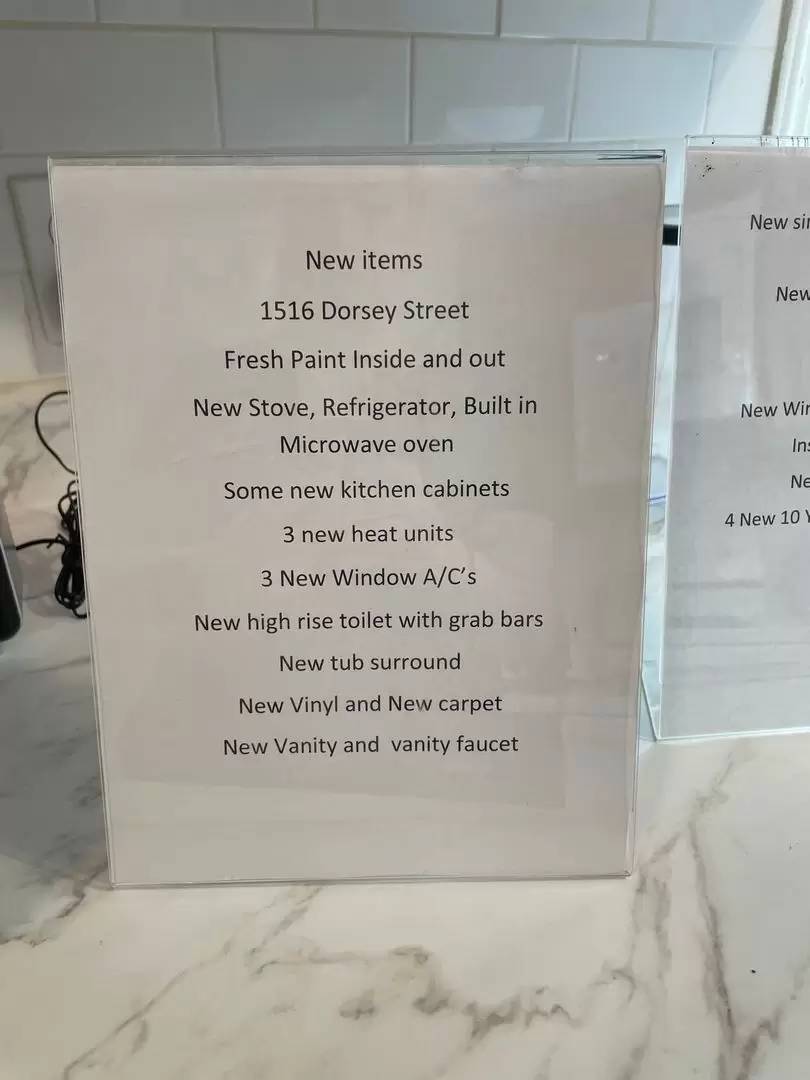 New items
1516 Dorsey Street
Fresh Paint Inside and out
New Stove, Refrigerator, Built in
Microwave oven
Some new kitchen cabinets
3 new heat units
3 New Window A/C's
New high rise toilet with grab bars
New tub surround
New Vinyl and New carpet
New Vanity and vanity faucet
New
New
New
4 New 10